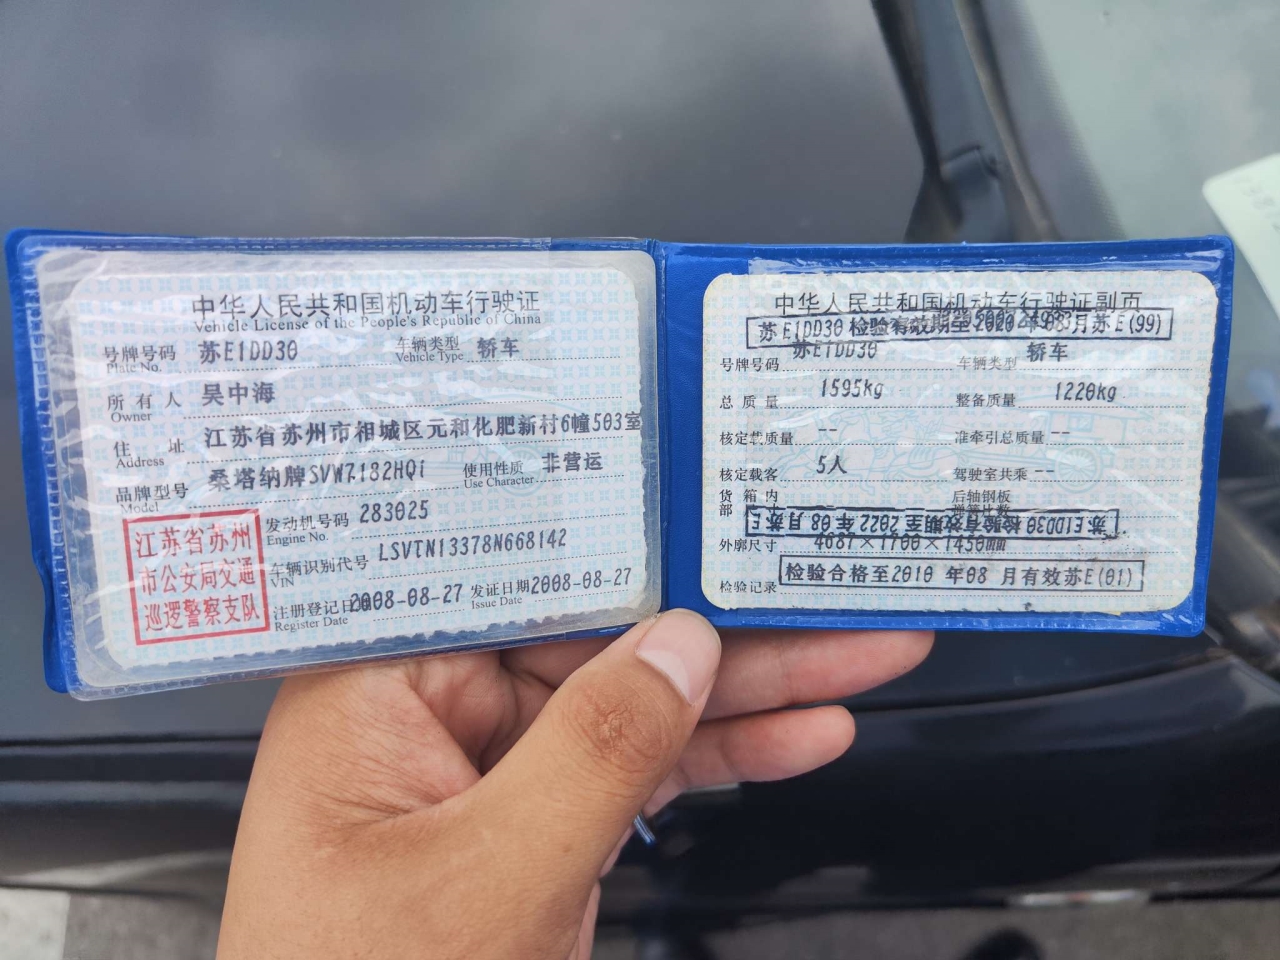 中华人民共和国机动车行驶证
Vehicle License of the People's Republic of China
号牌号码 苏E1DD30 车辆类型 轿车
Plate No. Vehicle Type
所有人 吴中海
Owner
住址 江苏省苏州市相城区元和化肥新村6幢503室
Address
品牌型号 桑塔纳牌SVW7182HQi 使用性质 非营运
Model Use Character
江苏省苏州
市公安局交通
巡逻警察支队
发动机号码 283025
Engine No.
车辆识别代号 LSVTN13378N668142
VIN
注册登记日 2008-08-27 发证日期 2008-08-27
Register Date Issue Date
中华人民共和国机动车行驶证副页
苏E1DD30 检验有效期至2020 年08月苏E(99)
号牌号码 苏E1DD30 车辆类型 轿车
总质量 1595kg 整备质量 1220kg
核定载质量 -- 准牵引总质量 --
核定载客 5人 驾驶室共乘 --
货箱内 后轴钢板
部 弹簧片数
苏E1DD30 检验有效期至 2022 年 08 月 苏E
外廓尺寸 4687×1700×1450mm
检验记录 检验合格至2010 年08 月有效苏E(01)